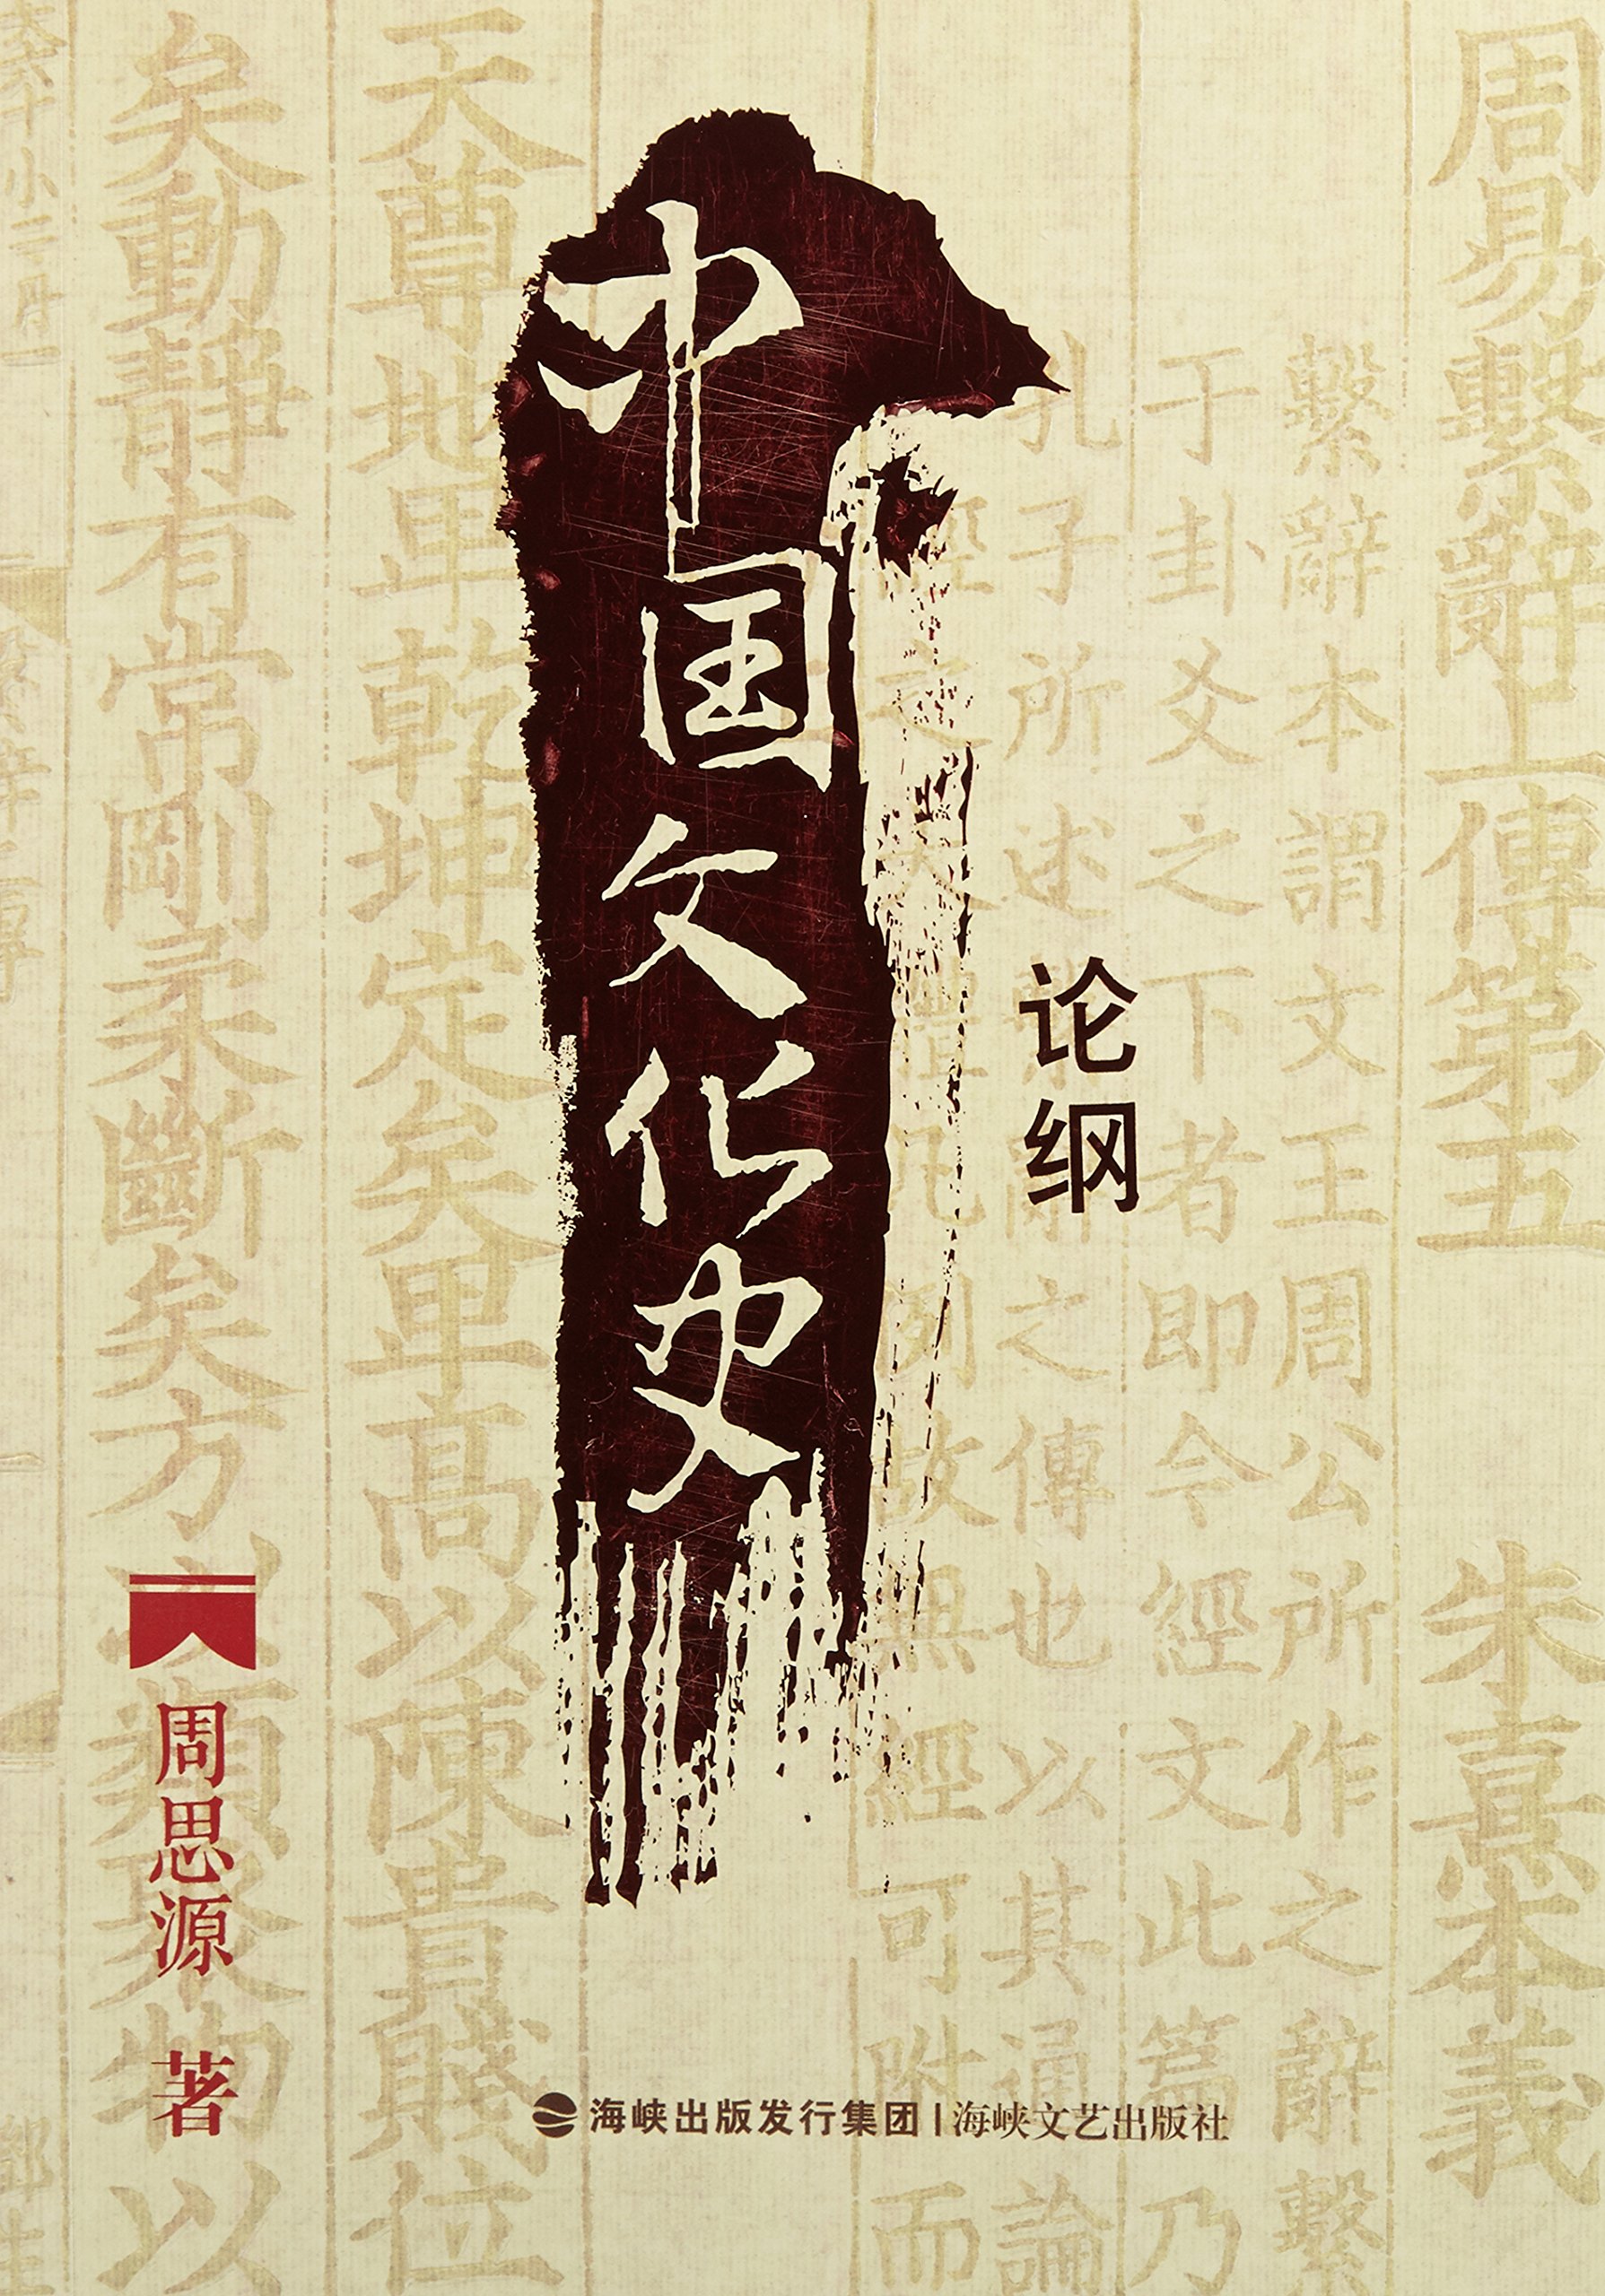 中国文化史
论纲
周思源 著
海峡出版发行集团 | 海峡文艺出版社
周易繫辭上傳第五 朱熹本義
繫辭本謂文王周公所作之辭繫
于卦爻之下者即今經文此篇乃
孔子所述繫辭之傳也以其通論
經之大體凡例故無經可附而
天尊地卑乾坤定矣卑髙以陳貴賤位
矣動靜有常剛柔斷矣方以類聚物以